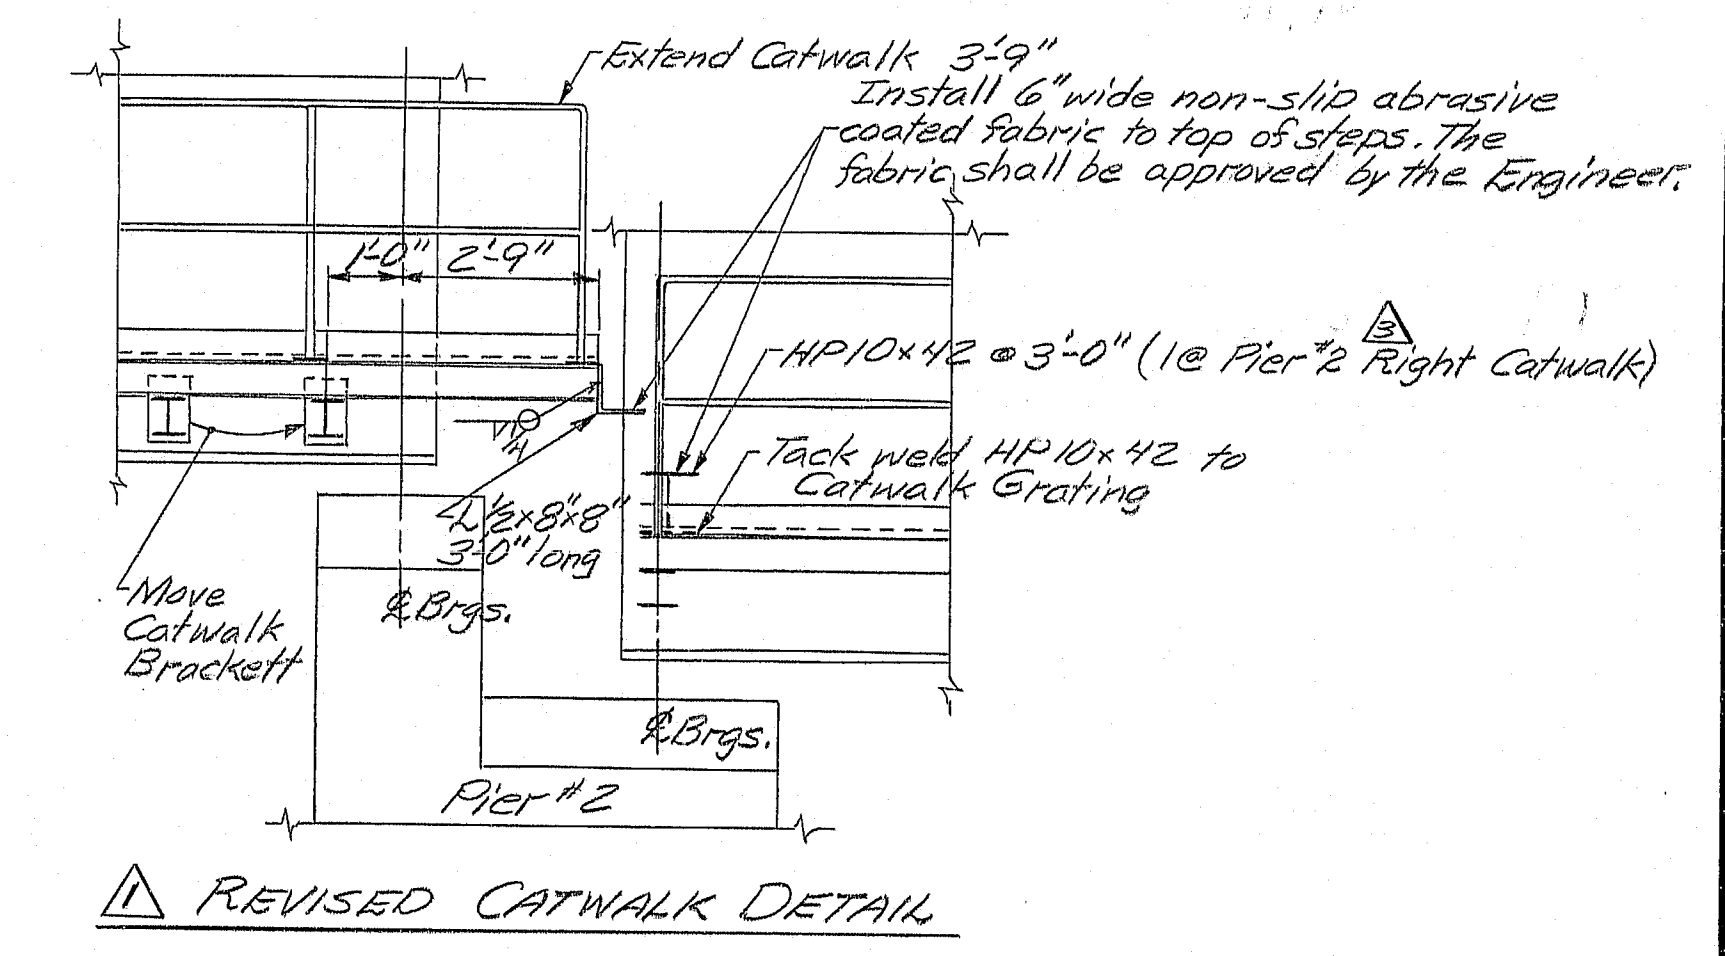 Extend Catwalk 3'-9"
Install 6" wide non-slip abrasive
coated fabric to top of steps. The
fabric shall be approved by the Engineer.
1'-0" 2'-9"
3
HP10x42 @ 3'-0" (1@ Pier #2 Right Catwalk)
1/4
Tack weld HP10x42 to
Catwalk Grating
L 1/2"x8"x8"
3'-0" long
Move
Catwalk
Brackett
℄ Brgs.
℄ Brgs.
Pier #2
1 REVISED CATWALK DETAIL